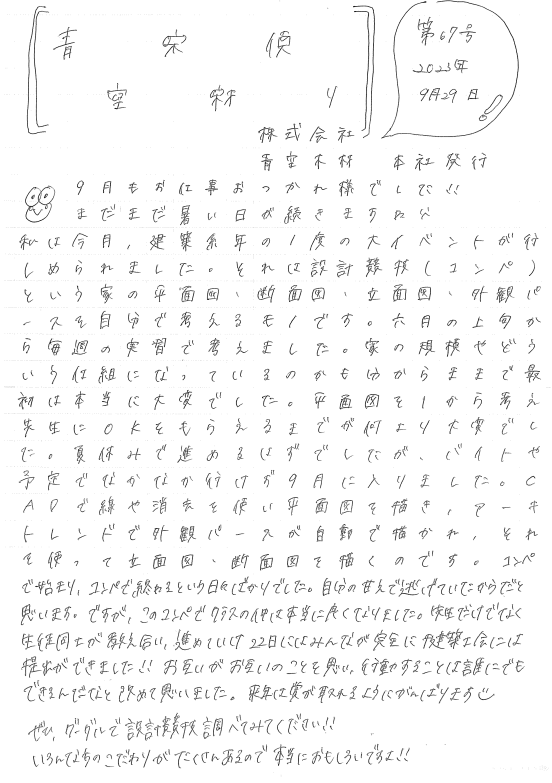 青空家族便り
第67号
2023年
9月29日
株式会社
青空木材 本社発行
9月もお仕事おつかれ様でした!!
まだまだ暑い日が続きますね
私は今月、建築系年の1度の大イベントが行
しめられました。それは設計競技(コンペ)
という家の平面図、断面図、立面図、外観パ
ースを自分で考えるモノです。六月の上旬か
ら毎週の実習で考えました。家の規模やどう
いう仕組になっているのかも分からままで最
初は本当に大変でした。平面図を1から考え
先生にOKをもらえるまでが何より大変でし
た。夏休みで進めるはずでしたが、バイトや
予定でなかなか行けず9月に入りました。C
ADで線や消去を使い平面図を描き、アーキ
トレンドで外観パースが自動で描かれ、それ
を使って立面図、断面図を描くのです。コンペ
で始まり、コンペで終わるという日々ばかりでした。自分の甘えで逃げていたからだと
思います。ですが、このコンペでクラスの仲は本当に良くなりました。先生だけでなく
生徒同士が教え合い、進めていけ22日にはみんなが完全に建築士会には
提出ができました!! お互いがお互いのことを思い、行動することは誰にでも
できるんだなと改めて思いました。来年は賞が取れるようにがんばります
ぜひ、グーグルで設計競技調べてみてください!!
いろんな家のこだわりがたくさんあるので本当におもしろいですよ!!